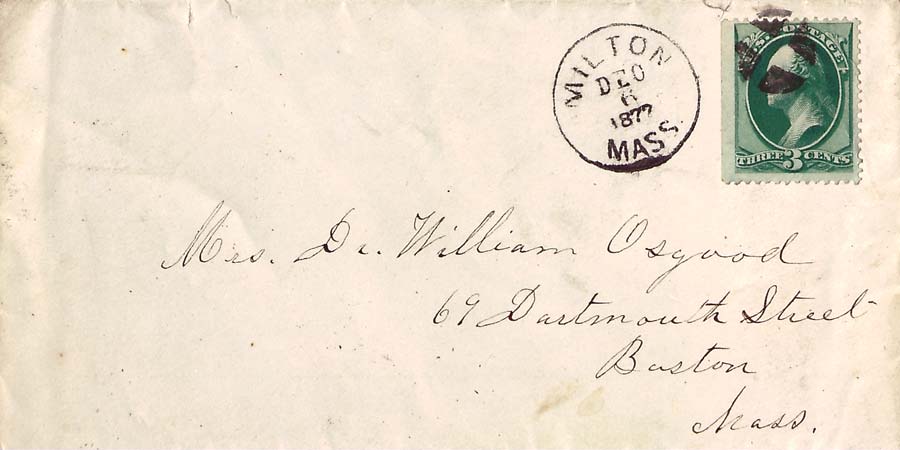 MILTON
DEC
6
1877
MASS.
U.S. POSTAGE
THREE 3 CENTS
Mrs. Dr. William Osgood
69 Dartmouth Street
Boston
Mass.